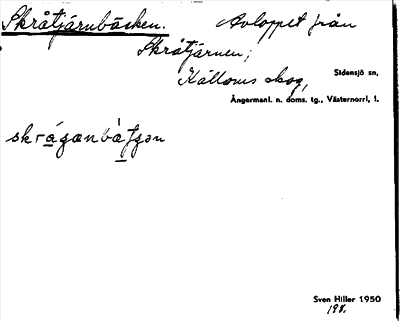 Skråtjärnbäcken. Avloppet från
Skråtjärnen;
Källoms skog,
Sidensjö sn,
Ångermanl. n. doms. tg., Västernorrl. l.
Sven Hiller 1950
198.